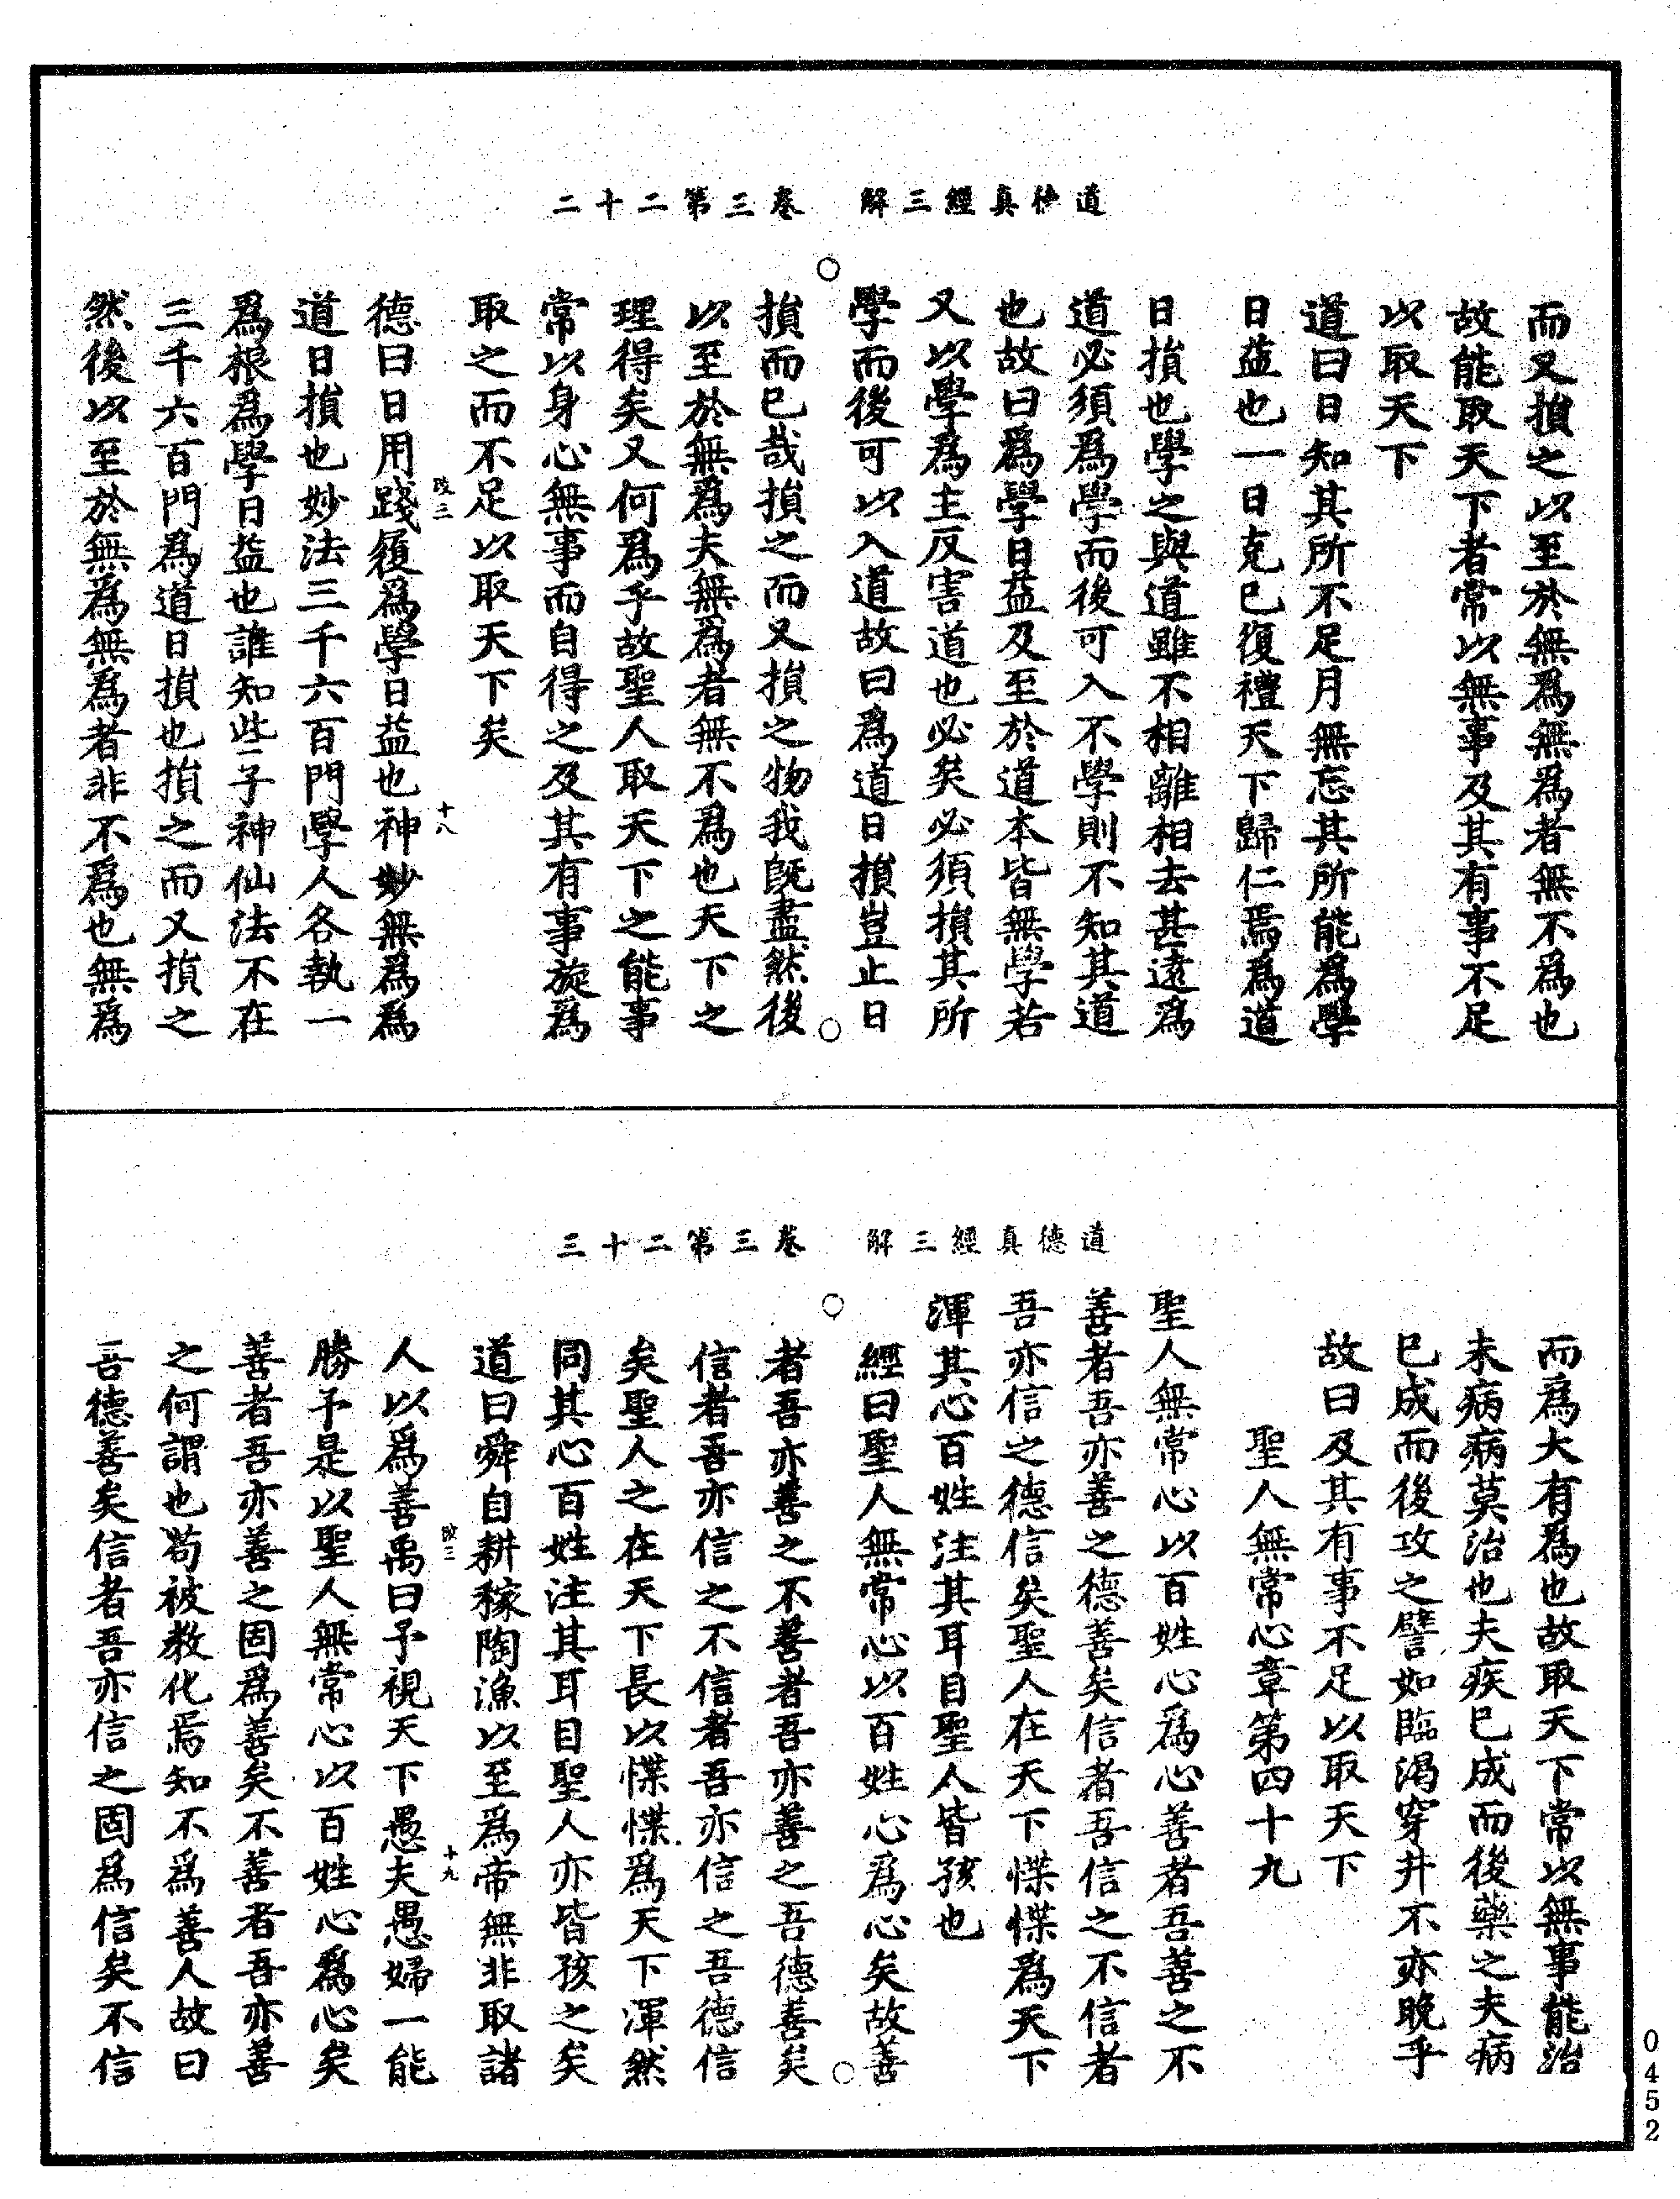 道德真經三解　卷三第二十二
而又損之以至於無爲無爲者無不爲也
故能取天下者常以無事及其有事不足
以取天下
道曰日知其所不足月無忘其所能爲學
日益也一日克已復禮天下歸仁焉爲道
日損也學之與道雖不相離相去甚遠爲
道必須爲學而後可入不學則不知其道
也故曰爲學日益及至於道本皆無學若
又以學爲主反害道也必矣必須損其所
學而後可以入道故曰爲道日損豈止日
損而已哉損之而又損之物我旣盡然後
以至於無爲夫無爲者無不爲也天下之
理得矣又何爲乎故聖人取天下之能事
常以身心無事而自得之及其有事旋爲
取之而不足以取天下矣
德曰日用踐履爲學日益也神妙無爲爲
道日損也妙法三千六百門學人各執一
爲根爲學日益也誰知些子神仙法不在
三千六百門爲道日損也損之而又損之
然後以至於無爲無爲者非不爲也無爲
道德真經三解　卷三第二十三
而爲大有爲也故取天下常以無事能治
未病病莫治也夫疾已成而後藥之夫病
已成而後攻之譬如臨渴穿井不亦晚乎
故曰及其有事不足以取天下
聖人無常心章第四十九
聖人無常心以百姓心爲心善者吾善之不
善者吾亦善之德善矣信者吾信之不信者
吾亦信之德信矣聖人在天下惵惵爲天下
渾其心百姓注其耳目聖人皆孩也
經曰聖人無常心以百姓心爲心矣故善
者吾亦善之不善者吾亦善之吾德善矣
信者吾亦信之不信者吾亦信之吾德信
矣聖人之在天下長以惵惵爲天下渾然
同其心百姓注其耳目聖人亦皆孩之矣
道曰舜自耕稼陶漁以至爲帝無非取諸
人以爲善禹曰予視天下愚夫愚婦一能
勝予是以聖人無常心以百姓心爲心矣
善者吾亦善之固爲善矣不善者吾亦善
之何謂也苟被教化焉知不爲善人故曰
吾德善矣信者吾亦信之固爲信矣不信
0452